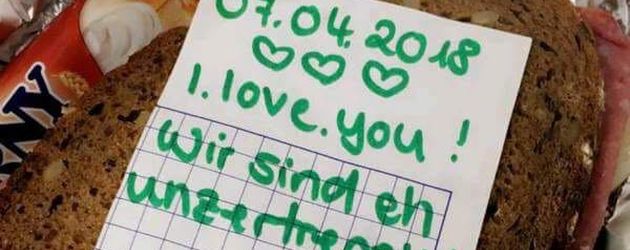 RNY
07.04.2018
I. love. you !
wir sind eh
unzertrenn